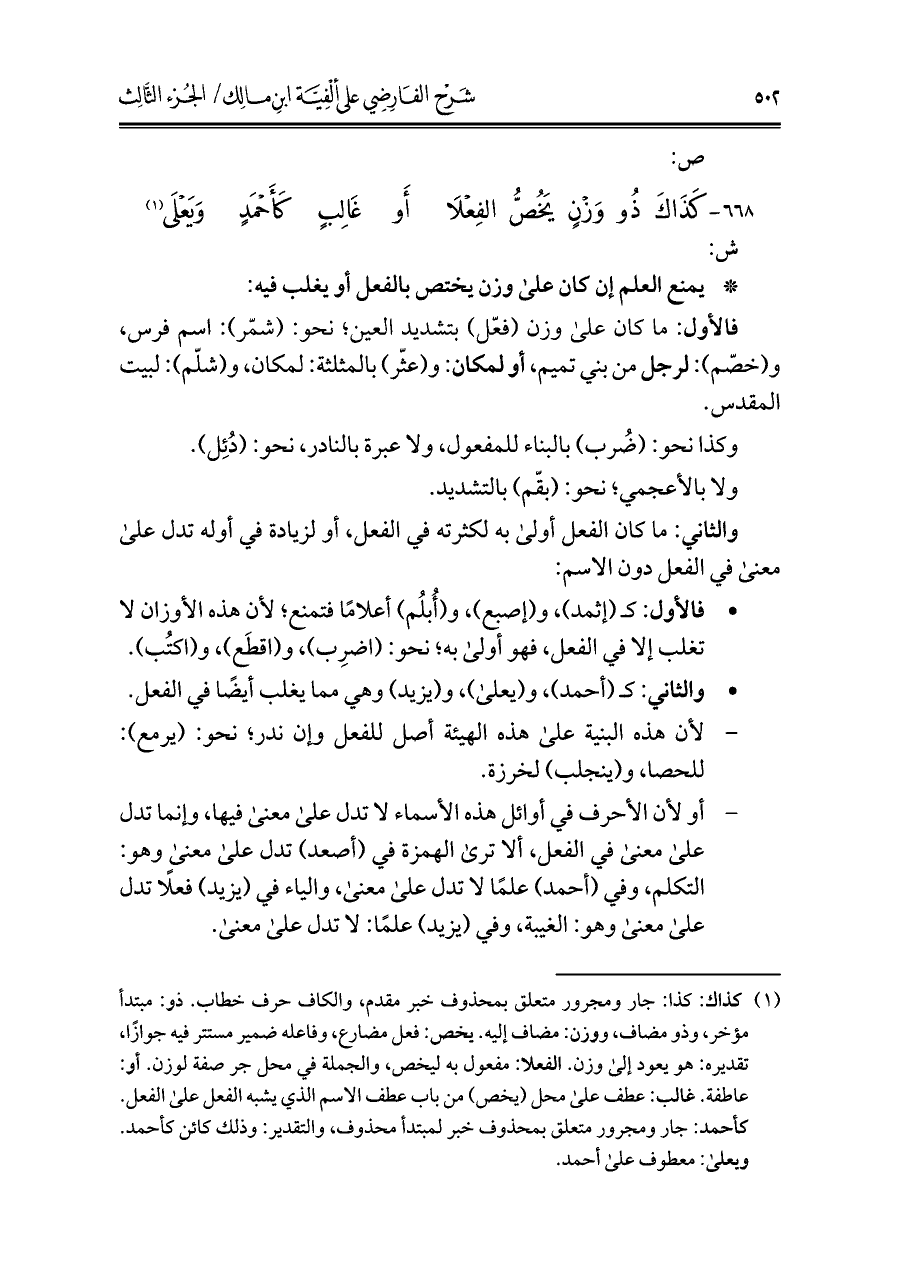 ٥٠٢ شَرْح الفَارِضِي على أَلْفِيَّة ابن مالك/ الجُزء الثَّالِث
ص:
٦٦٨- كَذَاكَ ذُو وَزْنٍ يَخُصُّ الفِعْلَا أَو غَالِبٍ كَأَحْمَدٍ وَيَعْلَىٰ(١)
ش:
* يمنع العلم إن كان علىٰ وزن يختص بالفعل أو يغلب فيه:
فالأول: ما كان علىٰ وزن (فعّل) بتشديد العين؛ نحو: (شمّر): اسم فرس،
و(خضّم): لرجل من بني تميم، أو لمكان: و(عثّر) بالمثلثة: لمكان، و(شلّم): لبيت
المقدس.
وكذا نحو: (ضُرب) بالبناء للمفعول، ولا عبرة بالنادر، نحو: (دُئِل).
ولا بالأعجمي؛ نحو: (بقّم) بالتشديد.
والثاني: ما كان الفعل أولىٰ به لكثرته في الفعل، أو لزيادة في أوله تدل علىٰ
معنىٰ في الفعل دون الاسم:
• فالأول: كـ (إثمد)، و(إصبع)، و(أُبلُم) أعلامًا فتمنع؛ لأن هذه الأوزان لا
تغلب إلا في الفعل، فهو أولىٰ به؛ نحو: (اضرِب)، و(اقطَع)، و(اكتُب).
• والثاني: كـ (أحمد)، و(يعلىٰ)، و(يزيد) وهي مما يغلب أيضًا في الفعل.
– لأن هذه البنية علىٰ هذه الهيئة أصل للفعل وإن ندر؛ نحو: (يرمع):
للحصا، و(ينجلب) لخرزة.
– أو لأن الأحرف في أوائل هذه الأسماء لا تدل علىٰ معنىٰ فيها، وإنما تدل
علىٰ معنىٰ في الفعل، ألا ترىٰ الهمزة في (أصعد) تدل علىٰ معنىٰ وهو:
التكلم، وفي (أحمد) علمًا لا تدل علىٰ معنىٰ، والياء في (يزيد) فعلًا تدل
علىٰ معنىٰ وهو: الغيبة، وفي (يزيد) علمًا: لا تدل علىٰ معنىٰ.
(١) كذاك: كذا: جار ومجرور متعلق بمحذوف خبر مقدم، والكاف حرف خطاب. ذو: مبتدأ
مؤخر، وذو مضاف، ووزن: مضاف إليه. يخص: فعل مضارع، وفاعله ضمير مستتر فيه جوازًا،
تقديره: هو يعود إلىٰ وزن. الفعلا: مفعول به ليخص، والجملة في محل جر صفة لوزن. أو:
عاطفة. غالب: عطف علىٰ محل (يخص) من باب عطف الاسم الذي يشبه الفعل علىٰ الفعل.
كأحمد: جار ومجرور متعلق بمحذوف خبر لمبتدأ محذوف، والتقدير: وذلك كائن كأحمد.
ويعلىٰ: معطوف علىٰ أحمد.